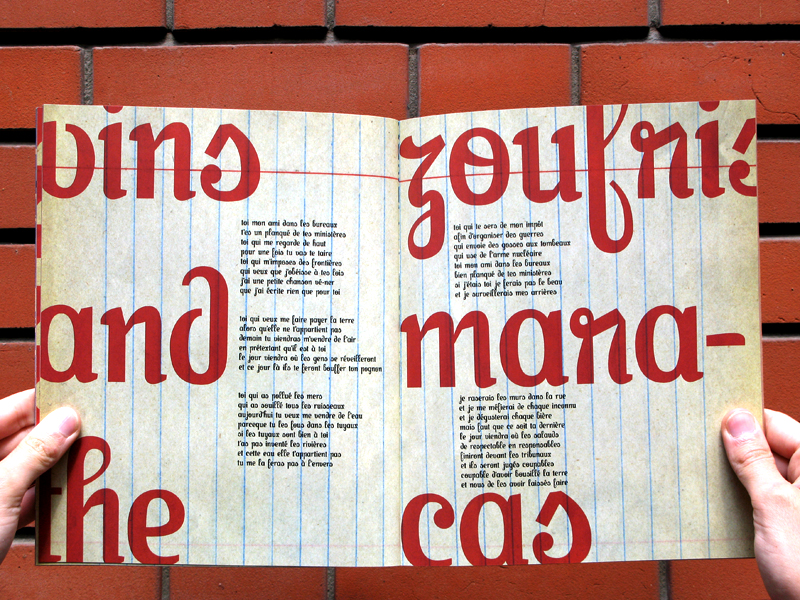 vins
and
the
toi mon ami dans les bureaux
t'es un planqué de tes ministères
toi qui me regarde de haut
pour une fois tu vas te taire
toi qui m'imposes des frontières
qui veux que j'obéisse à tes lois
j'ai une petite chanson vé-ner
que j'ai écrite rien que pour toi
toi qui veux me faire payer la terre
alors qu'elle ne t'appartient pas
demain tu viendras m'vendre de l'air
en prétextant qu'il est à toi
le jour viendra où les gens se réveilleront
et ce jour là ils te feront bouffer ton pognon
toi qui as pollué les mers
qui as souillé tous les ruisseaux
aujourd'hui tu veux me vendre de l'eau
parceque tu les fous dans les tuyaux
si les tuyaux sont bien à toi
t'as pas inventé les rivières
et cette eau elle t'appartient pas
tu me la feras pas à l'envers
zoufris
mara-
cas
toi qui te sers de mon impôt
afin d'organiser des guerres
qui envoie des gosses aux tombeaux
qui use de l'arme nucléaire
toi mon ami dans les bureaux
bien planqué de tes ministères
si j'étais toi je ferais pas le beau
et je surveillerais mes arrières
je raserais les murs dans la rue
et je me méfierai de chaque inconnu
et je dégusterai chaque bière
mais faut que ce soit ta dernière
le jour viendra où les salauds
de respectable en responsables
finiront devant les tribunaux
et ils seront jugés coupables
coupable d'avoir bousillé la terre
et nous de les avoir laissés faire